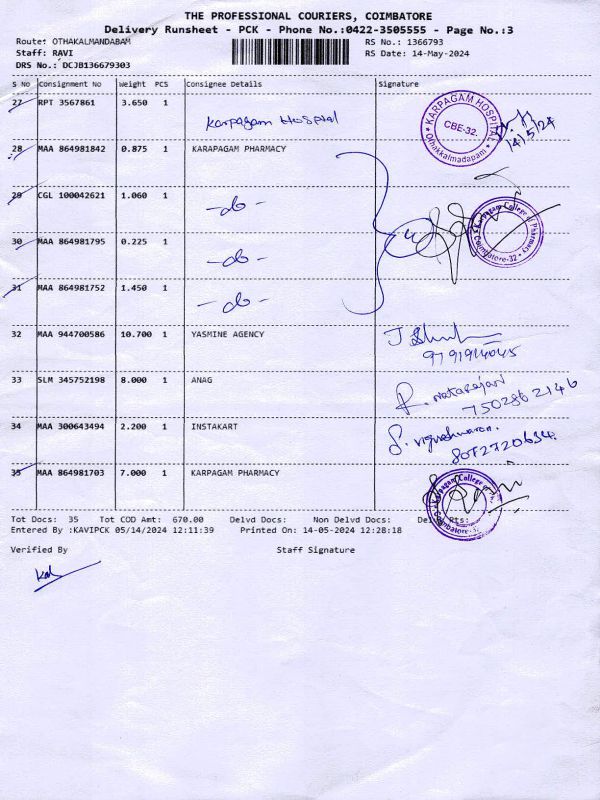 THE PROFESSIONAL COURIERS, COIMBATORE
Delivery Runsheet - PCK - Phone No.:0422-3505555 - Page No.:3
Route: OTHAKALMANDABAM RS No.: 1366793
Staff: RAVI RS Date: 14-May-2024
DRS No.: DCJB136679303
S No Consignment No Weight PCS Consignee Details Signature
27 RPT 3567861 3.650 1 Karpagam Hospital
KARPAGAM HOSPITAL
CBE-32.
Othakkalmadapam
14/5/24
28 MAA 864981842 0.875 1 KARAPAGAM PHARMACY
29 CGL 100042621 1.060 1 -do-
Karpagam College of Pharmacy
Coimbatore-32
30 MAA 864981795 0.225 1 -do-
31 MAA 864981752 1.450 1 -do-
32 MAA 944700586 10.700 1 YASMINE AGENCY
9791914045
33 SLM 345752198 8.000 1 ANAG R. Natarajan
7502862146
34 MAA 300643494 2.200 1 INSTAKART S. Vigneshwaran.
8072720634.
35 MAA 864981703 7.000 1 KARPAGAM PHARMACY
Karpagam College
Coimbatore-32
Tot Docs: 35 Tot COD Amt: 670.00 Delvd Docs: Non Delvd Docs: Del Rts:
Entered By :KAVIPCK 05/14/2024 12:11:39 Printed On: 14-05-2024 12:28:18
Verified By Staff Signature